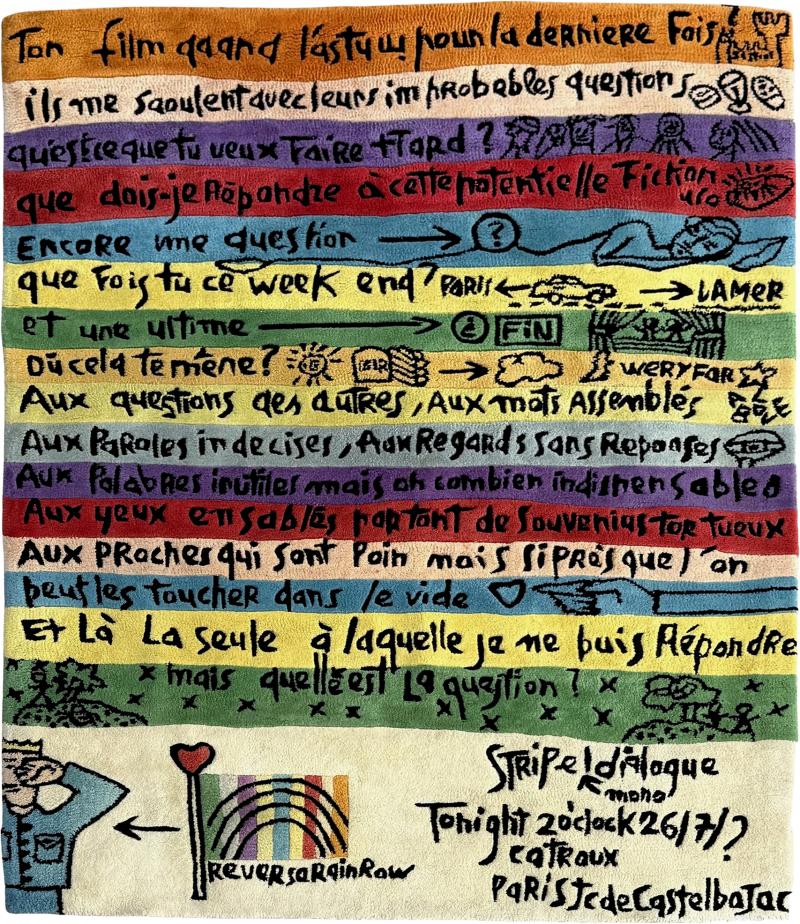 Ton film quand l'as tu vu pour la derniere Fois
ils me saoulent avec leurs improbables questions
qu'est ce que tu veux Faire + Tard ?
que dois-je Répondre à cette potentielle Fiction
Encore une question ?
que Fais tu ce week end ? PARIS LAMER
et une ultime ? FiN
Où cela te mène ? WERY FAR
Aux questions des autres, Aux mots Assemblés
Aux Paroles indecises, Aux Regards sans Reponses
Aux Palabres inutiles mais oh combien indispensables
Aux yeux ensablés partant de souvenirs tortueux
Aux PRoches qui sont loin mais si près que l'on
peut les toucher dans le vide
Et Là La seule à laquelle je ne puis Répondre
mais quelle est La question ?
STRiPe! dialogue
mono
Tonight 2 o'clock 26/7/?
catroux
PARiS Jc de Castelbajac
REVERSaRainRow